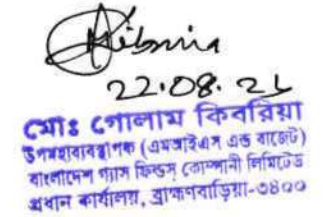 Kibria
22.08.21
মোঃ গোলাম কিবরিয়া
উপমহাব্যবস্থাপক (এমআইএস এন্ড বাজেট)
বাংলাদেশ গ্যাস ফিল্ডস্ কোম্পানী লিমিটেড
প্রধান কার্যালয়, ব্রাহ্মণবাড়িয়া-৩৪০০